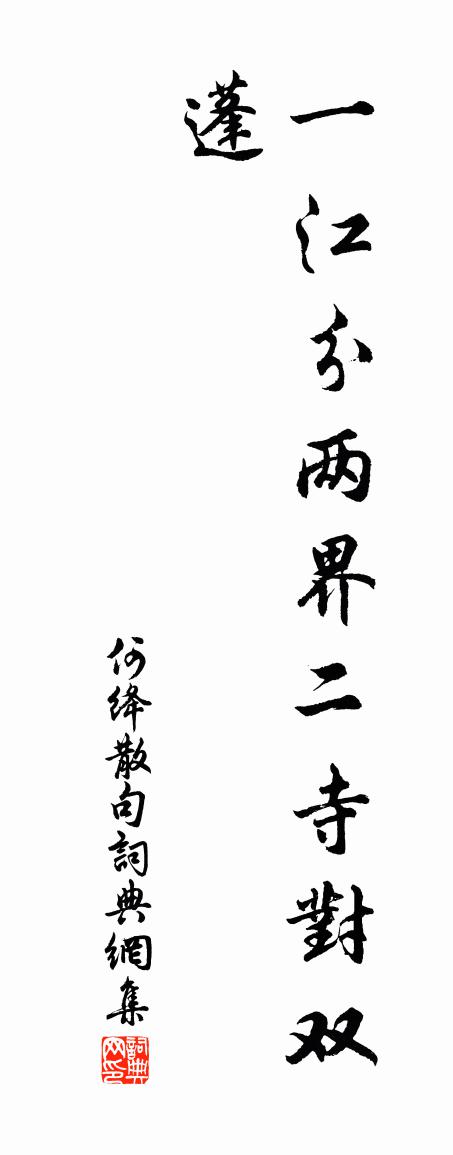 一江分两界二寺對双
蓬
何绛散句詞典網集
詞典网印